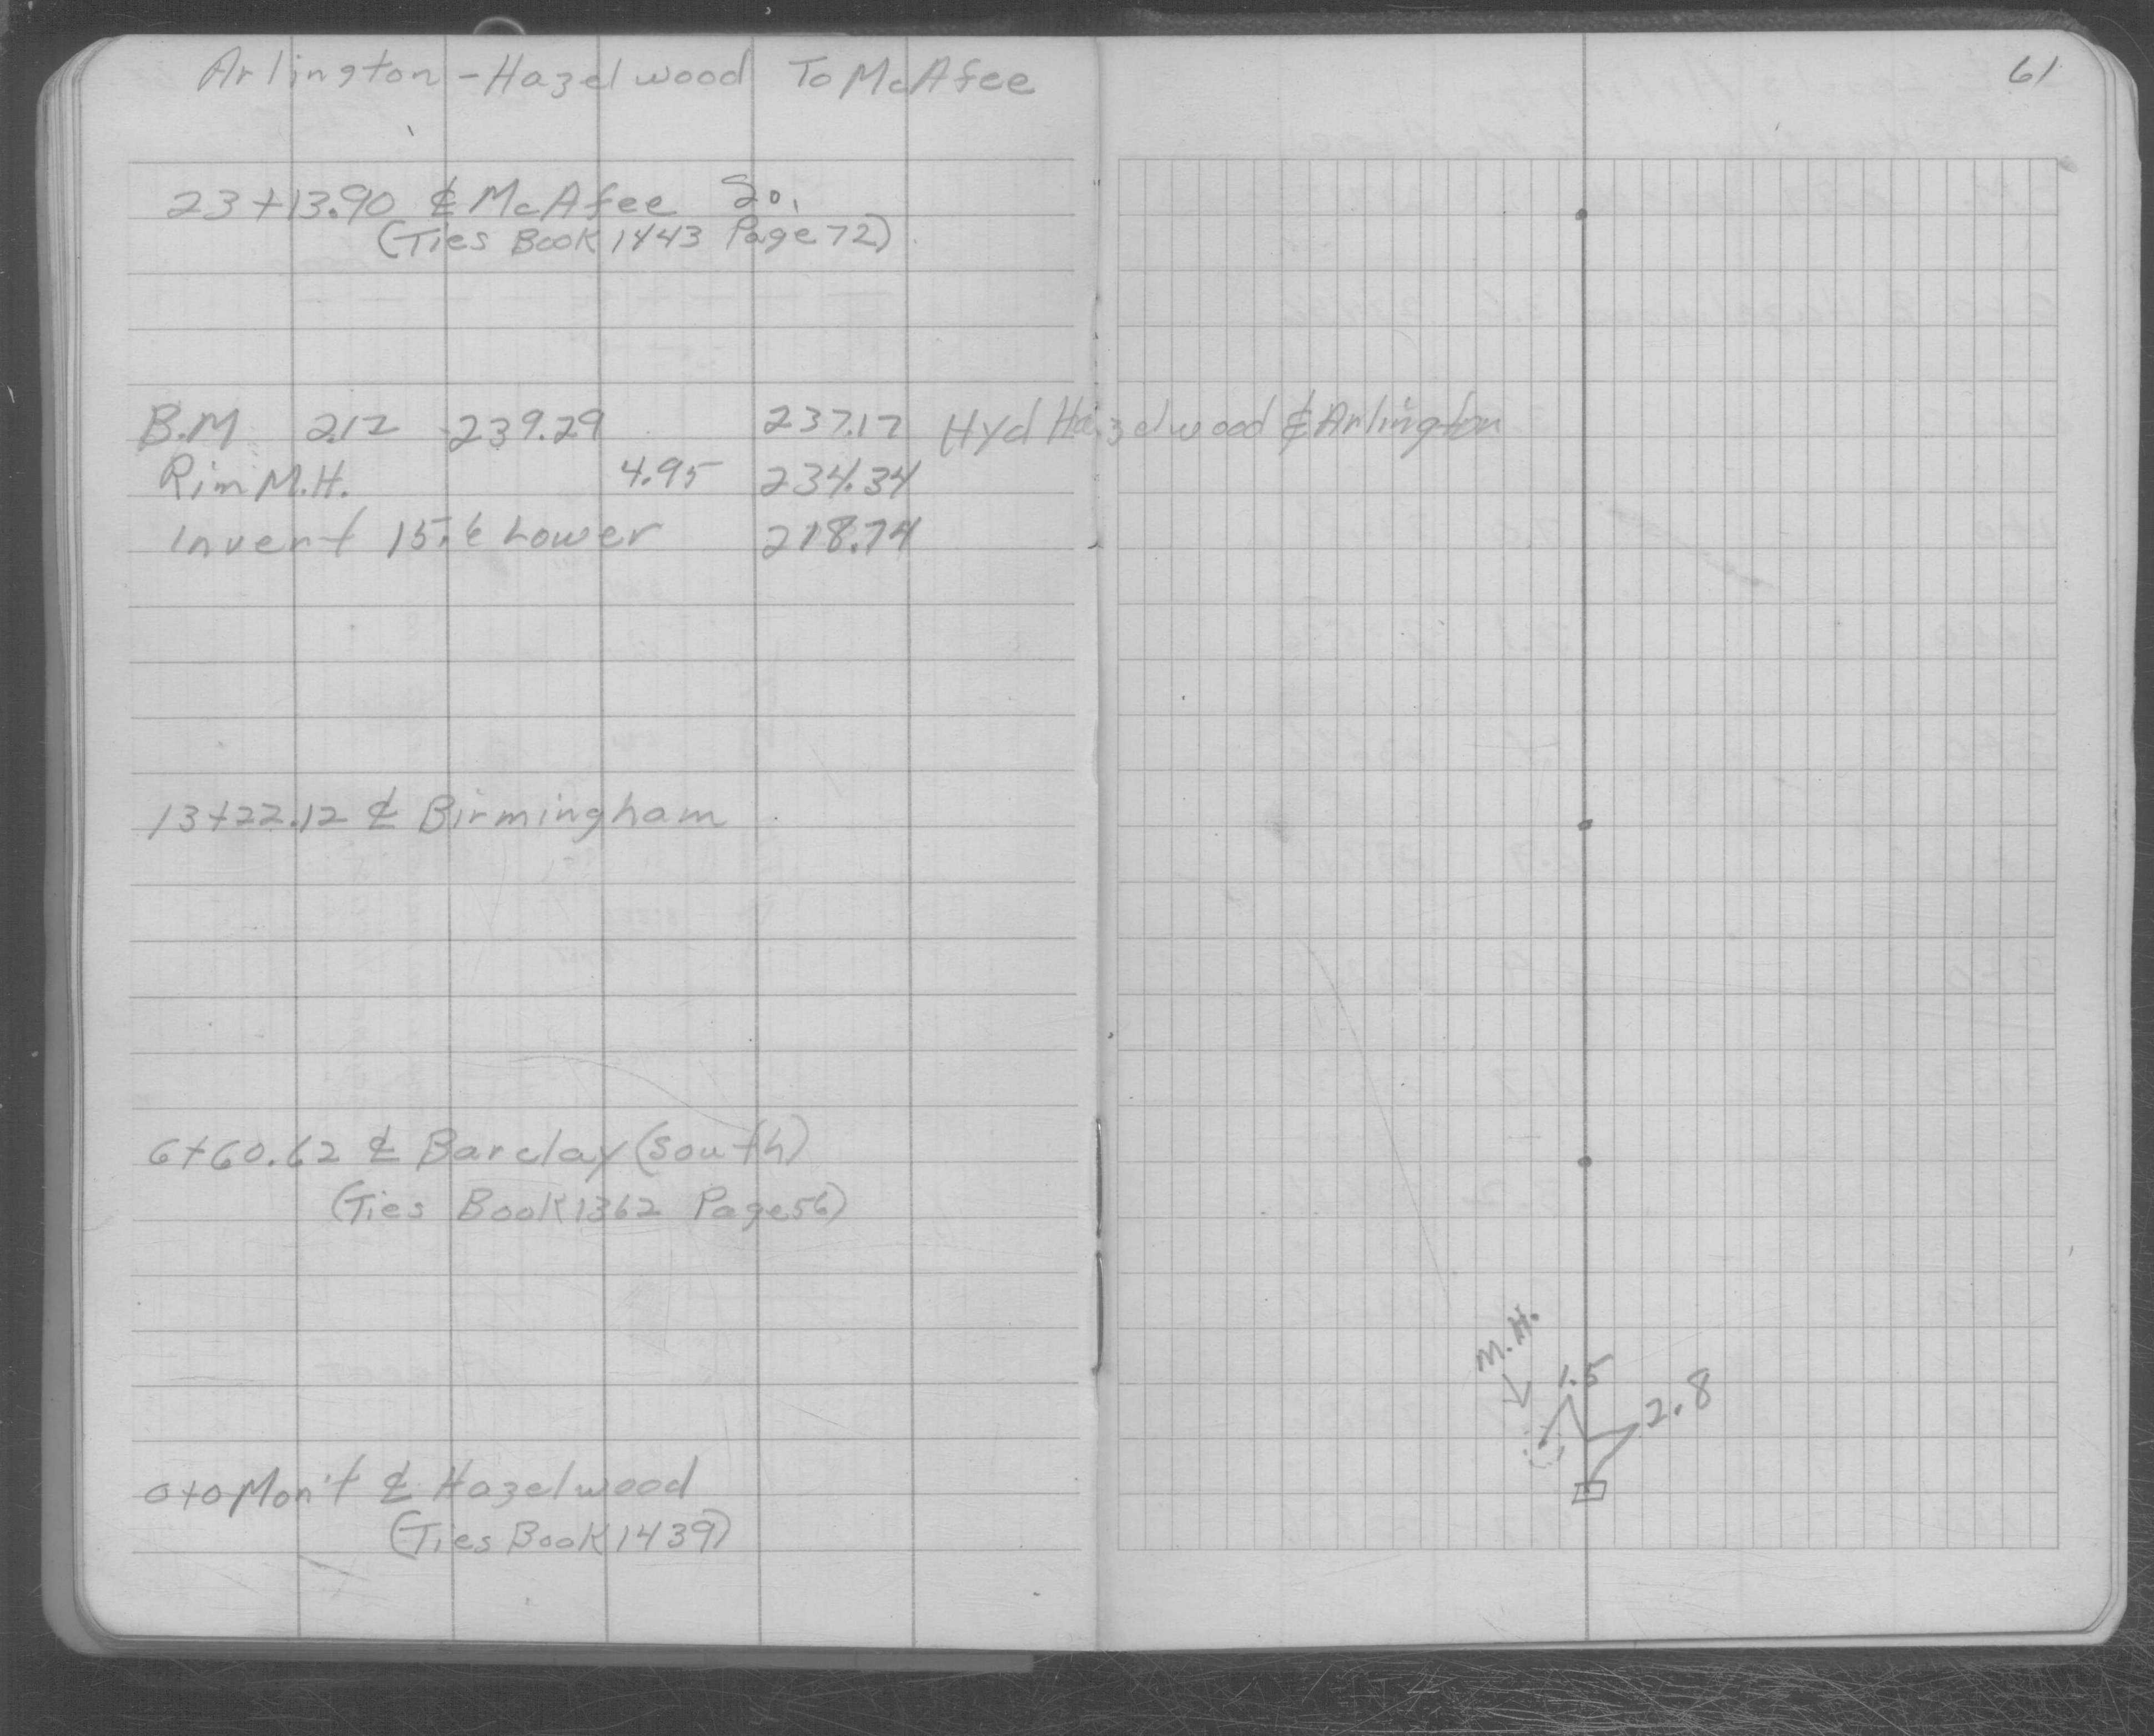 Arlington - Hazelwood To McAfee
61
23+13.90 ℄ McAfee So.
(Ties Book 1443 Page 72)
B.M 2.12 239.29 237.17 Hyd Hazelwood ℄ Arlington
Rim M.H. 4.95 234.34
Invert 15.6 Lower 218.74
13+22.12 ℄ Birmingham
6+60.62 ℄ Barclay (South)
(Ties Book 1362 Page 56)
M.H.
1.5
2.8
0+0 Mon't ℄ Hazelwood
(Ties Book 1439)